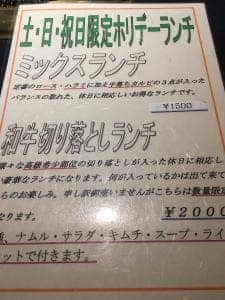 土・日・祝日限定ホリデーランチ
ミックスランチ
定番のロース・ハラミに加え中落ちカルビの3点が入った
バランスの取れた、休日に相応しいお得なランチです。
¥1500
和牛切り落としランチ
々な高級希少部位の切り落としが入った休日に相応し
豪華なランチになります。何が入っているかは出て来て
らのお楽しみ。申し訳御座いませんがこちらは数量限定
なります。
¥2000
、ナムル・サラダ・キムチ・スープ・ライ
ットで付きます。